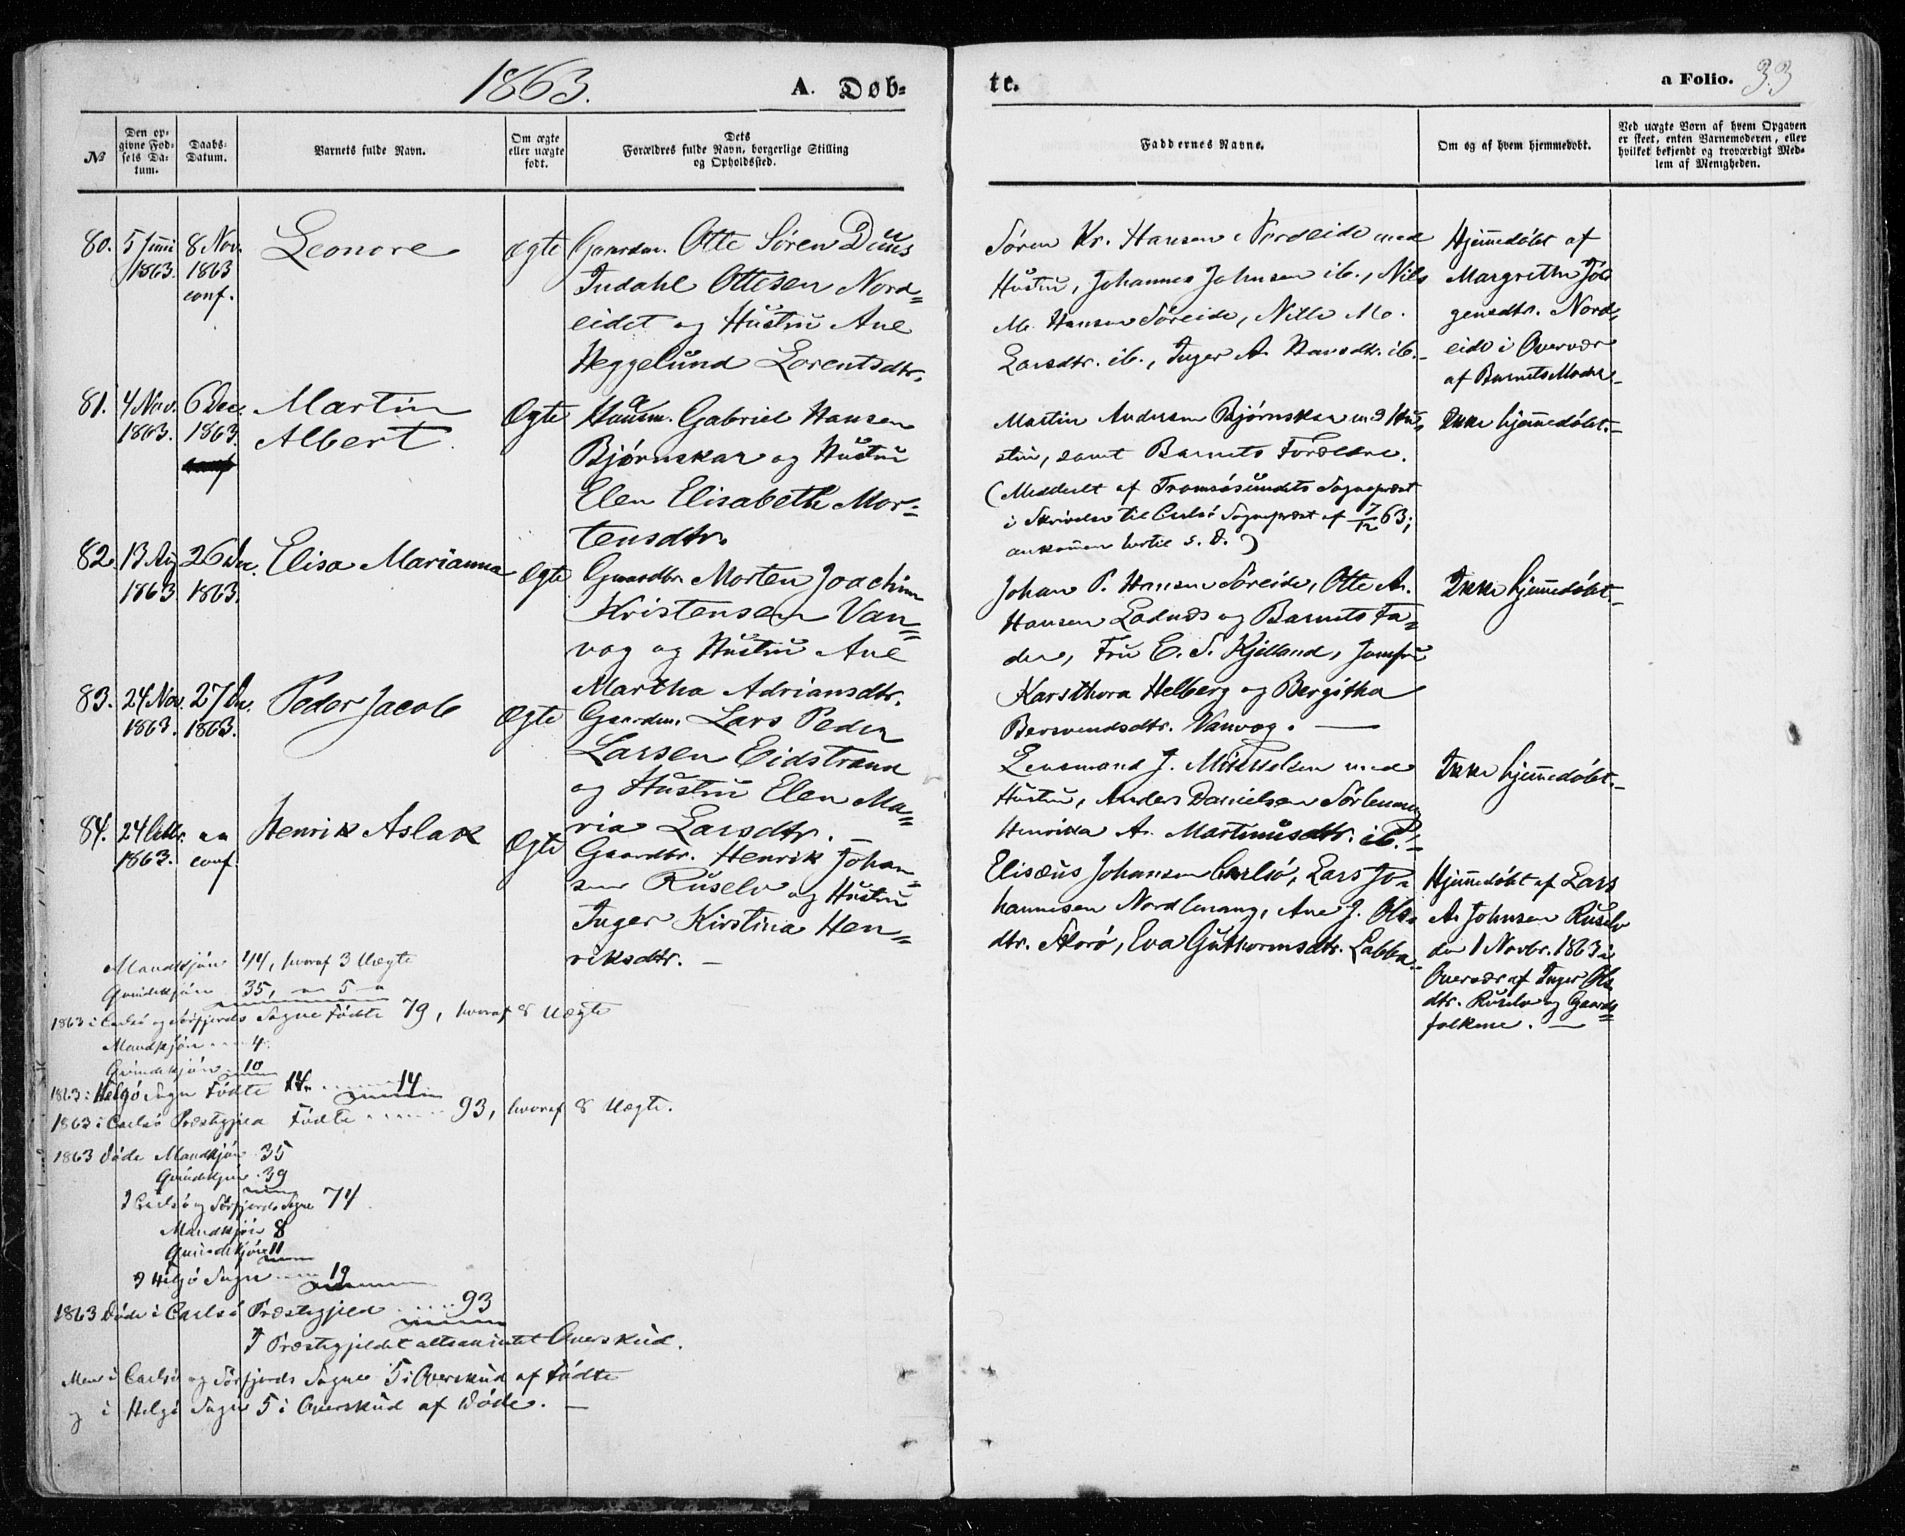 1863.
A. Døb-
te.
a Folio. 33
№
Den op-
givne Fød-
sels Da-
tum.
Daabs-
Datum.
Barnets fulde Navn.
Om ægte
eller uægte
født.
Dets
Forældres fulde Navn, borgerlige Stilling
og Opholdssted.
Faddernes Navne.
Om og af hvem hjemmedøbt.
Ved uægte Børn af hvem Opgaven
er skeet, enten Barnemoderen, eller
hvilket bekjendt og troværdigt Med-
lem af Menigheden.
80.
5 Juni
1863.
8 Nov.
1863
conf.
Leonore
Ægte
Gaardm. Otte Søren Duus
Indahl Ottesen Nord-
eidet og Hustru Ane
Heggelund Lorentsdtr.
Søren Kr. Hansen Nordeide med
Hustru, Johannes Johnsen ib., Nils
M. Hansen Søreide, Nille Mo.
Larsdtr. ib., Inger A. Hansdtr. ib.-
Hjemmedøbt af
Margrethe Jør
gensdtr. Nord-
eide i Overvær
af Barnets Moder-
81.
4 Nov.
1863.
6 Dec.
1863.
Martin
Albert.
Ægte
Huusm. Gabriel Hansen
Bjørnskar og Hustru
Elen Elisabeth Mor-
tensdtr.
Martin Andersen Bjørnskar med Hu-
stru, samt Barnets Forældre.
(Meddeelt af Tromsøsundets Sognepræst
i Skrivelse til Carlsø Sognepræst af 7/12 63;
ankommen hertil s. D.)
Ikke hjemmedøbt.-
82.
13 Aug
1863
26 Dec.
1863.
Elisa Marianna
Ægte
Gaardbr. Morten Joachim
Kristensen Van-
vog og Hustru Ane
Martha Adriansdtr.
Johan P. Hansen Søreide, Otte A.
Hansen Ladnæs og Barnets Fa-
der, Fru E. S. Kjelland, Jomfru
Karsthora Helberg og Bergitha
Bersvendsdtr. Vanvog. -
Ikke hjemmedøbt.-
83.
24 Nov.
1863.
27 Dec.
1863.
Peder Jacob
Ægte
Gaardm. Lars Peder
Larsen Eidstrand
og Hustru Elen Ma-
ria Larsdtr. -
Lensmand J. Mikkelsen med
Hustru, Anders Danielsen Sørlenang
Henrikka A. Martinusdtr. ib.-
Ikke hjemmedøbt.-
84.
24 Octbr.
1863.
conf
Henrik Aslak
Ægte
Gaardbr. Henrik Johan-
sen Ruselv og Hustru
Inger Kirstina Hen-
riksdtr. -
Elisæus Johansen Carlsø, Lars Jo-
hannesen Nordlenang, Ane J. Ols-
dtr. Storø, Eva Guthormsdtr. Labba.-
Hjemmedøbt af Lars
A. Johnsen Ruselv
den 1 Novbr. 1863 i
Overvær af Inger Ols
dtr. Ruselv og Gaards-
folkene. -
Mandkjøn 44, hvoraf 3 Uægte
Qvindekjøn 35, - 5 -
1863 i Carlsø og Sørfjords Sogne Fødte 79, hvoraf 8 Uægte
Mandkjøn .... 4.
Qvindekjøn 10
1863 i Helgø Sogn Fødte 14 ...... 14
1863 i Carlsø Præstegjeld Fødte ...... 93, hvoraf 8 Uægte.
1863 Døde Mandkjøn 35
Qvindekjøn 39
I Carlsø og Sørfjords Sogne 74.
Mandkjøn 8
Qvindekjøn 11
I Helgø Sogn .... 19
1863 Døde i Carlsø Præstegjeld ...... 93
I Præstegjeldet altsaa intet Overskud.
Men i Carlsø og Sørfjords Sogne 5 i Overskud af Fødte
og i Helgø Sogn 5 i Overskud af Døde. -